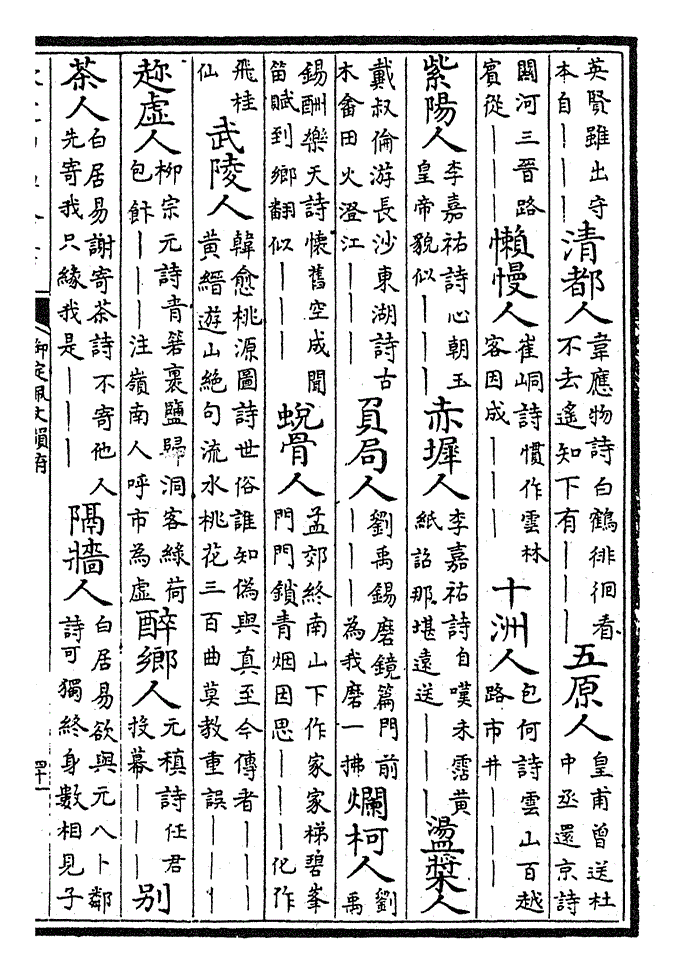 英賢雖出守本自丨丨丨清都人韋應物詩白鶴徘徊看不去遙知下有丨丨丨五原人皇甫曾送杜中丞還京詩
關河三晉路賓從丨丨丨懶慢人崔峒詩慣作雲林客因成丨丨丨十洲人包何詩雲山百越路市井丨丨丨
紫陽人李嘉祐詩心朝玉皇帝貌似丨丨丨赤墀人李嘉祐詩自嘆未霑黃紙詔那堪遠送丨丨丨盪槳人
戴叔倫游長沙東湖詩古木畬田火澄江丨丨丨負局人劉禹錫磨鏡篇門前丨丨丨為我磨一拂爛柯人劉禹
錫酬樂天詩懷舊空成聞笛賦到鄉翻似丨丨丨蛻骨人孟郊終南山下作家家梯碧峯門門鎖青烟因思丨丨丨化作
飛桂仙武陵人韓愈桃源圖詩世俗誰知偽與真至今傳者丨丨丨黃縉遊山絕句流水桃花三百曲莫教重誤丨丨丨
趂虛人柳宗元詩青箬裹鹽歸洞客綠荷包飰丨丨丨注嶺南人呼市為虛醉鄉人元稹詩任君投募丨丨丨別
茶人白居易謝寄茶詩不寄他人先寄我只緣我是丨丨丨隔牆人白居易欲與元八卜鄰詩可獨終身數相見子
御定佩文韻府